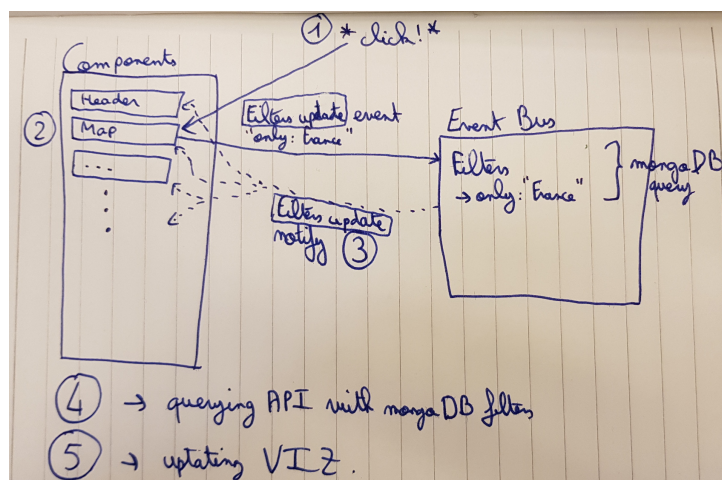 ① *click!*
Components
Header
② Map
....
Filters update event
"only: France"
Event Bus
Filters
→ only: "France"
mongoDB
query
Filters update
notify ③
④ → querying API with mongoDB filters
⑤ → uptating VIZ.